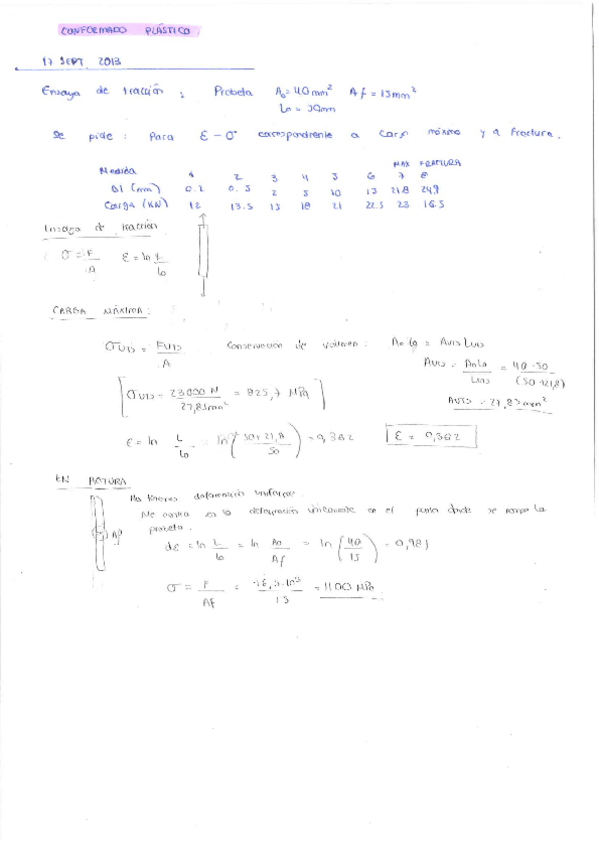 CONFORMADO PLÁSTICO
17 SEPT 2013
Ensayo de tracción : Probeta A₀=40mm² Af=15mm²
L₀ = 50mm
Se pide : Para ε-σ correspondiente a carga máxima y a fractura.
MAX FRACTURA
Medida 1 2 3 4 5 6 7 8
Δl (mm) 0.2 0.5 2 5 10 15 21.8 24.9
Carga (kN) 12 13.5 15 18 21 22.5 23 16.5
Ensayo de tracción
σ = F/A ε = ln L/L₀
CARGA MÁXIMA :
σUTS = FUTS/A Conservación de volumen : A₀·L₀ = AUTS LUTS
AUTS = A₀L₀/LUTS = 40·50/(50+21,8)
[σUTS = 23000 N/27,85mm² = 825,7 MPa]
AUTS = 27,85mm²
ε = ln L/L₀ = ln((50+21,8)/50) = 0,362 ε = 0,362
EN ROTURA
No tenemos deformación uniforme.
Me centro en la deformación únicamente en el punto donde se rompe la
probeta.
Af
dε = ln L/L₀ = ln A₀/Af = ln(40/15) = 0,981
σ = F/Af = 16,5·10³/15 = 1100 MPa